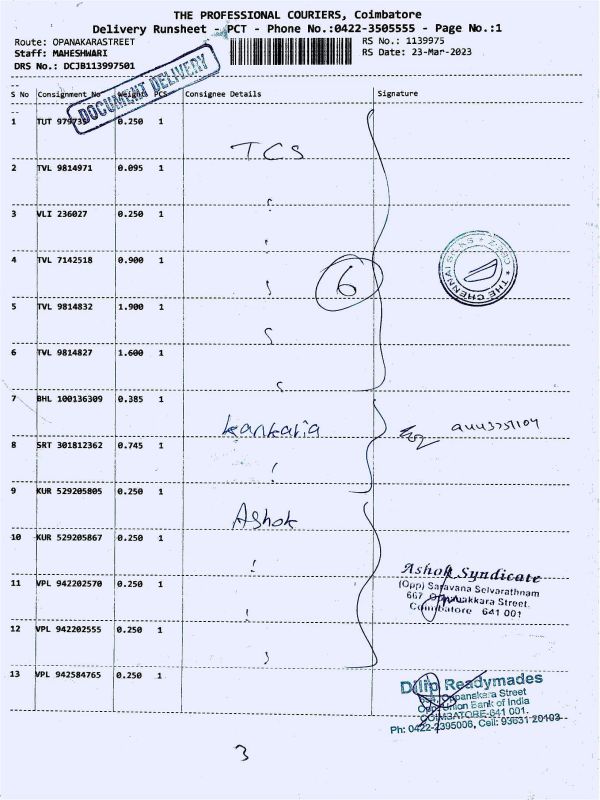 THE PROFESSIONAL COURIERS, Coimbatore
Delivery Runsheet - PCT - Phone No.:0422-3505555 - Page No.:1
Route: OPANAKARASTREET RS No.: 1139975
Staff: MAHESHWARI RS Date: 23-Mar-2023
DRS No.: DCJB113997501
DOCUMENT DELIVERY
S No Consignment No Weight PCS Consignee Details Signature
1 TUT 0.250 1
TCS
2 TVL 9814971 0.095 1
3 VLI 236027 0.250 1
4 TVL 7142518 0.900 1
THE CHENNAI SILKS
6
5 TVL 9814832 1.900 1
6 TVL 9814827 1.600 1
7 BHL 100136309 0.385 1
kankaria
8 SRT 301812362 0.745 1
9 KUR 529205805 0.250 1
Ashok
10 KUR 529205867 0.250 1
Ashok Syndicate
11 VPL 942202570 0.250 1
(Opp) Saravana Selvarathnam
667, Oppanakkara Street,
Coimbatore 641 001
12 VPL 942202555 0.250 1
13 VPL 942584765 0.250 1
Dilip Readymades
Oppanakara Street
Opp. Union Bank of India
COIMBATORE-641 001.
Ph: 0422-2395006, Cell: 93631 20103
3